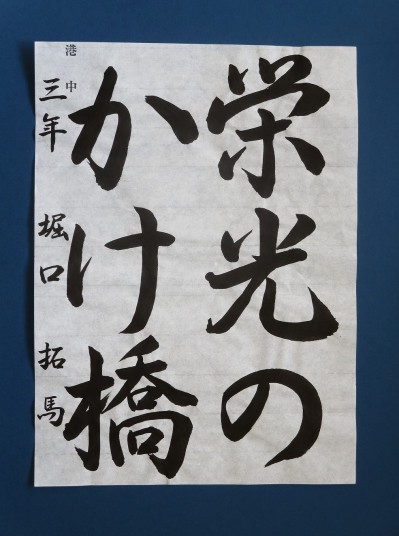 栄光の
かけ橋
港中
三年 堀口 拓馬